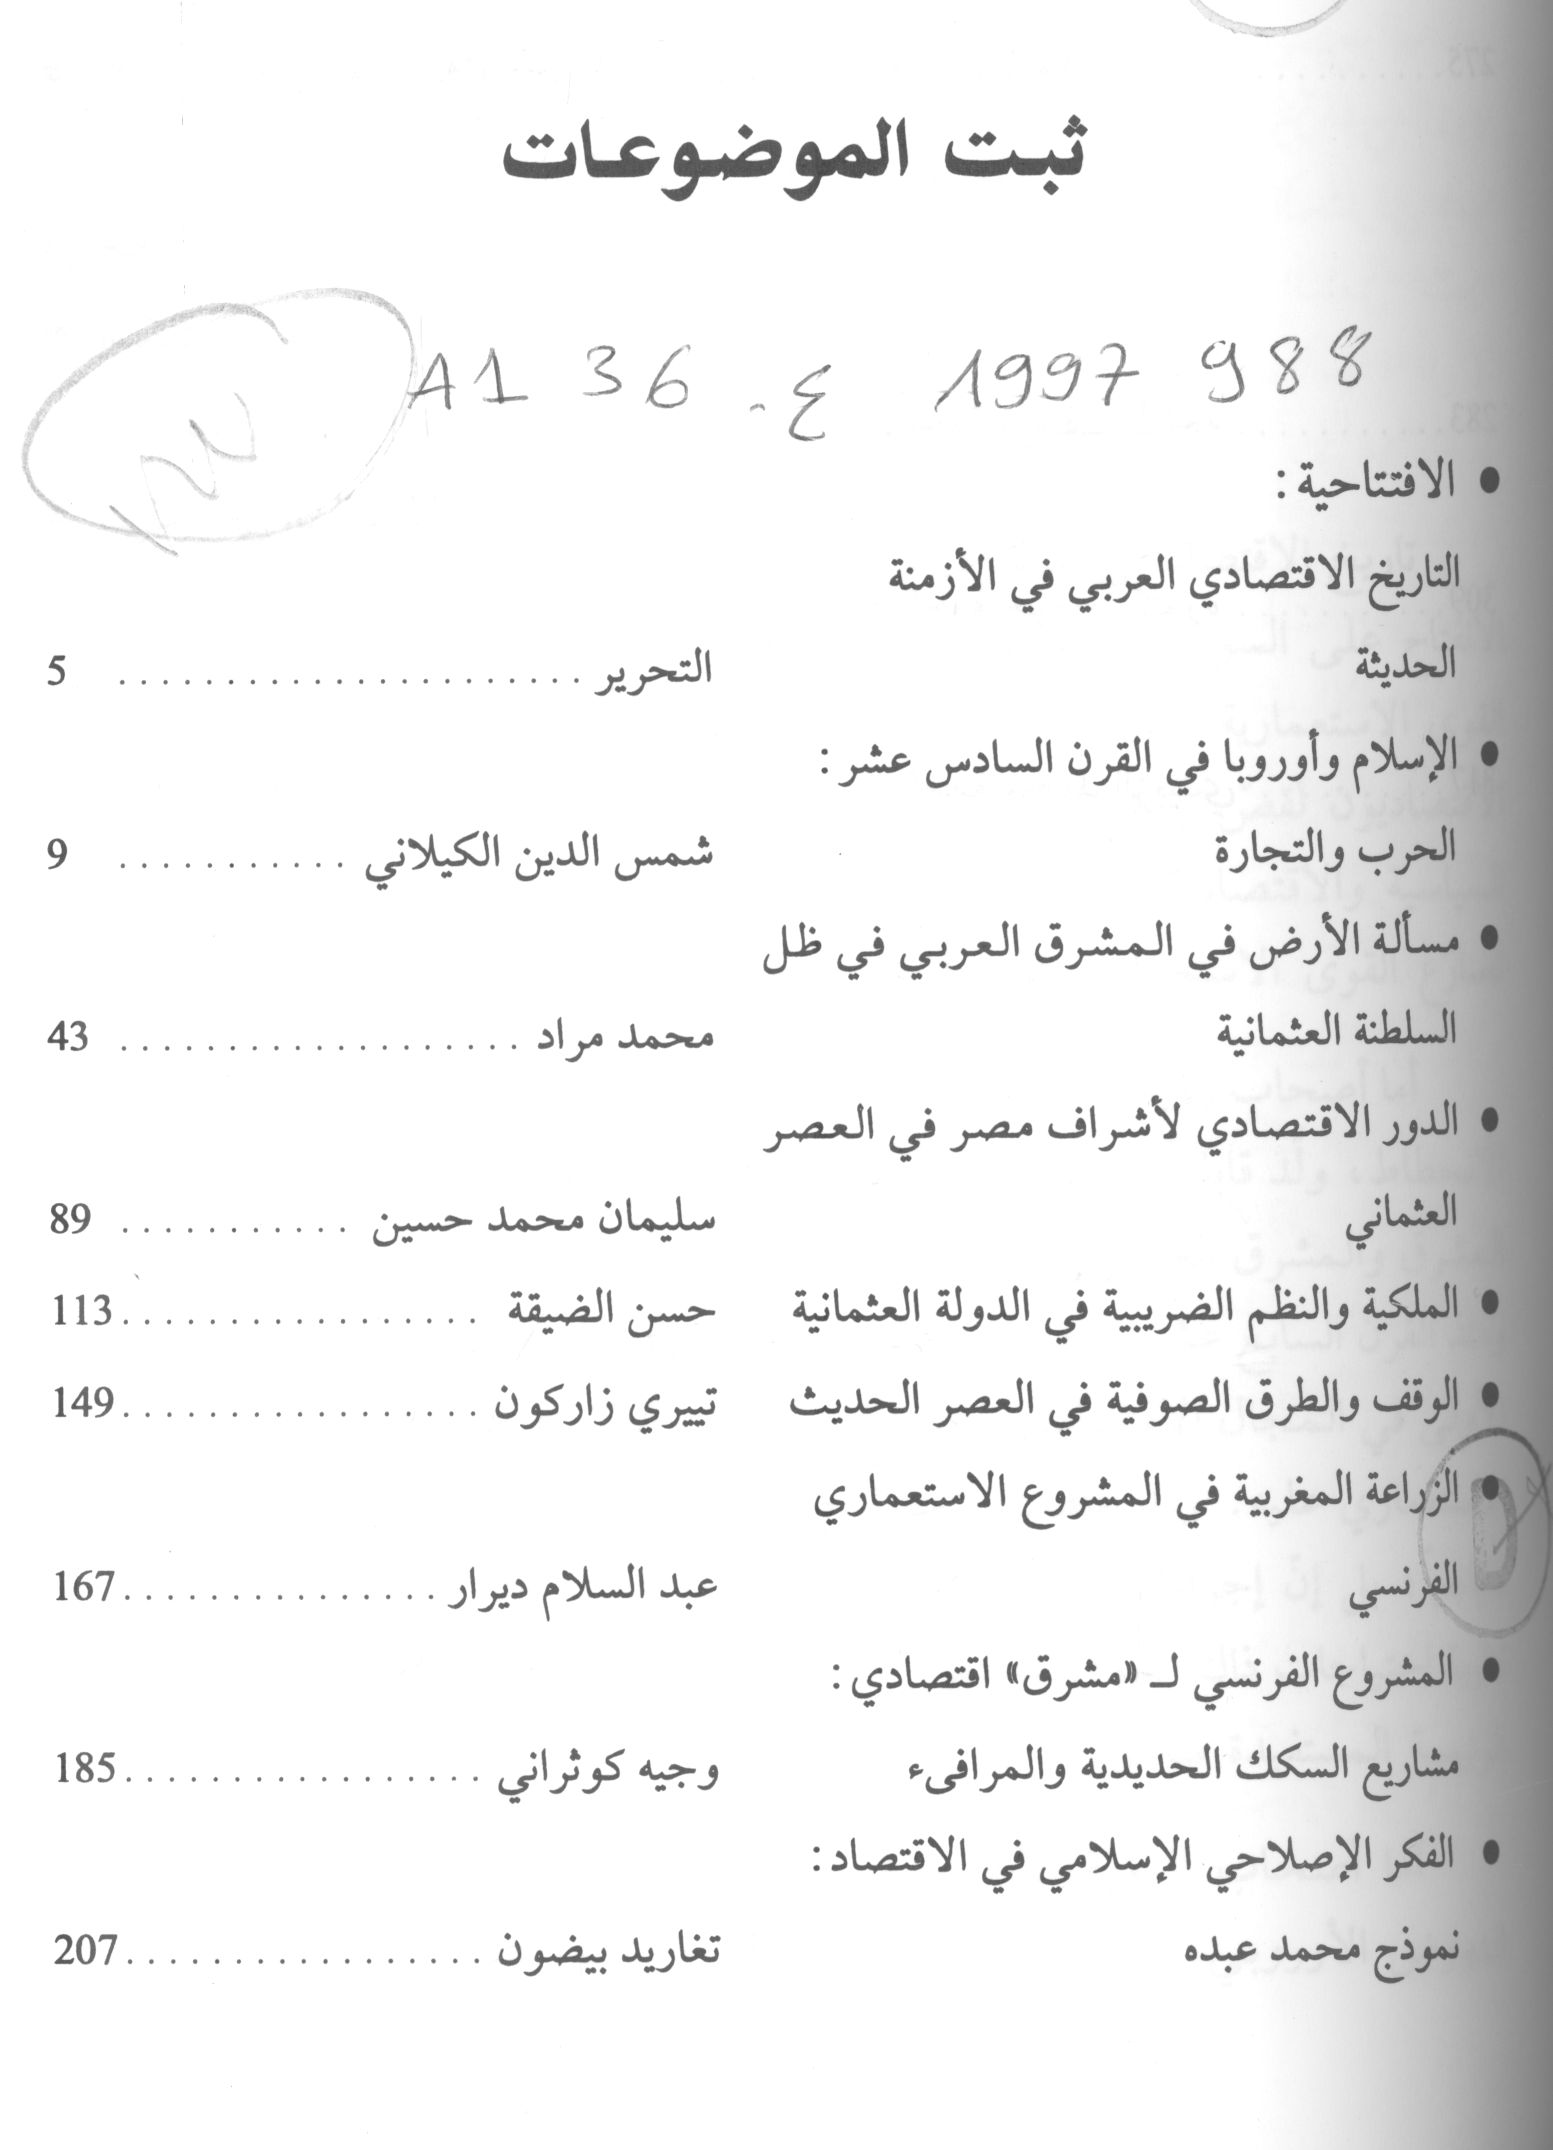 ثبت الموضوعات
A1 36 ع. 1997 988
• الافتتاحية :
التاريخ الاقتصادي العربي في الأزمنة
الحديثة التحرير ...................... 5
• الإسلام وأوروبا في القرن السادس عشر :
الحرب والتجارة شمس الدين الكيلاني ........... 9
• مسألة الأرض في المشرق العربي في ظل
السلطنة العثمانية محمد مراد ................... 43
• الدور الاقتصادي لأشراف مصر في العصر
العثماني سليمان محمد حسين ........... 89
• الملكية والنظم الضريبية في الدولة العثمانية حسن الضيقة ................. 113
• الوقف والطرق الصوفية في العصر الحديث تييري زاركون ................. 149
• الزراعة المغربية في المشروع الاستعماري
الفرنسي عبد السلام ديرار ............... 167
• المشروع الفرنسي لـ «مشرق» اقتصادي :
مشاريع السكك الحديدية والمرافىء وجيه كوثراني ................. 185
• الفكر الإصلاحي الإسلامي في الاقتصاد :
نموذج محمد عبده تغاريد بيضون ................. 207